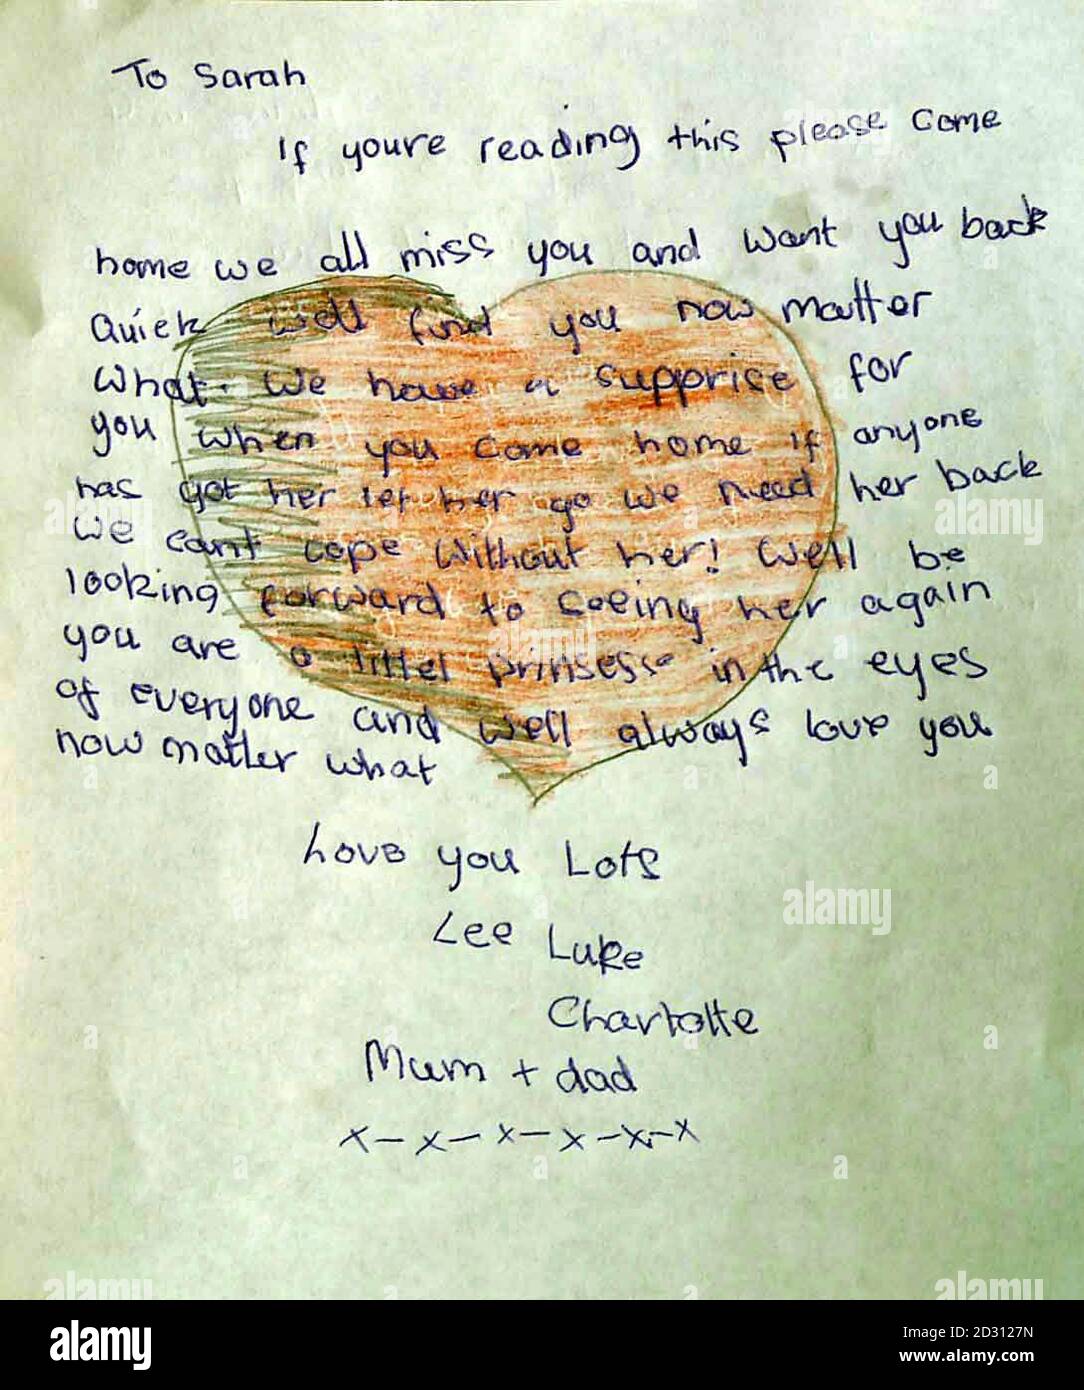 To Sarah
If youre reading this please come
home we all miss you and want you back
quick well find you now matter
what. We have a supprise for
you when you come home if anyone
has got her let her go we need her back
we cant cope without her! well be
looking forward to seeing her again
you are a littel prinsesse in the eyes
of everyone and well always love you
now matter what
Love you Lots
Lee Luke
Charlotte
Mum + dad
x-x-x-x-x-x
alamy
a
Image ID: 2D3127N
www.alamy.com